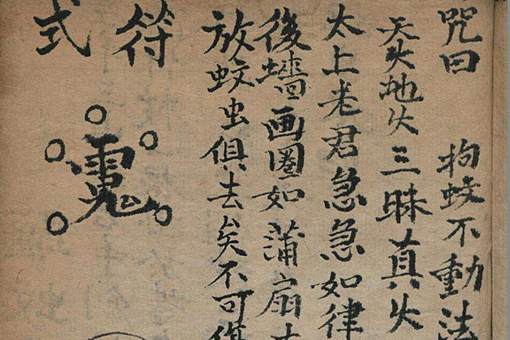 咒曰 拘蚊不動法
天火地火三昧真火
太上老君急急如律
後墻画圈如蒲扇
放蚊虫俱去矣不可
符式